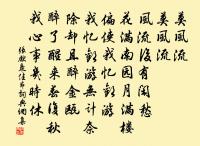 莫風流莫風流
風流後有閑愁
花滿南園月滿樓
偏使我憶歡游
我憶歡游無計奈
除却且醉金甌
醉了醒來春復秋
我心事幾時休